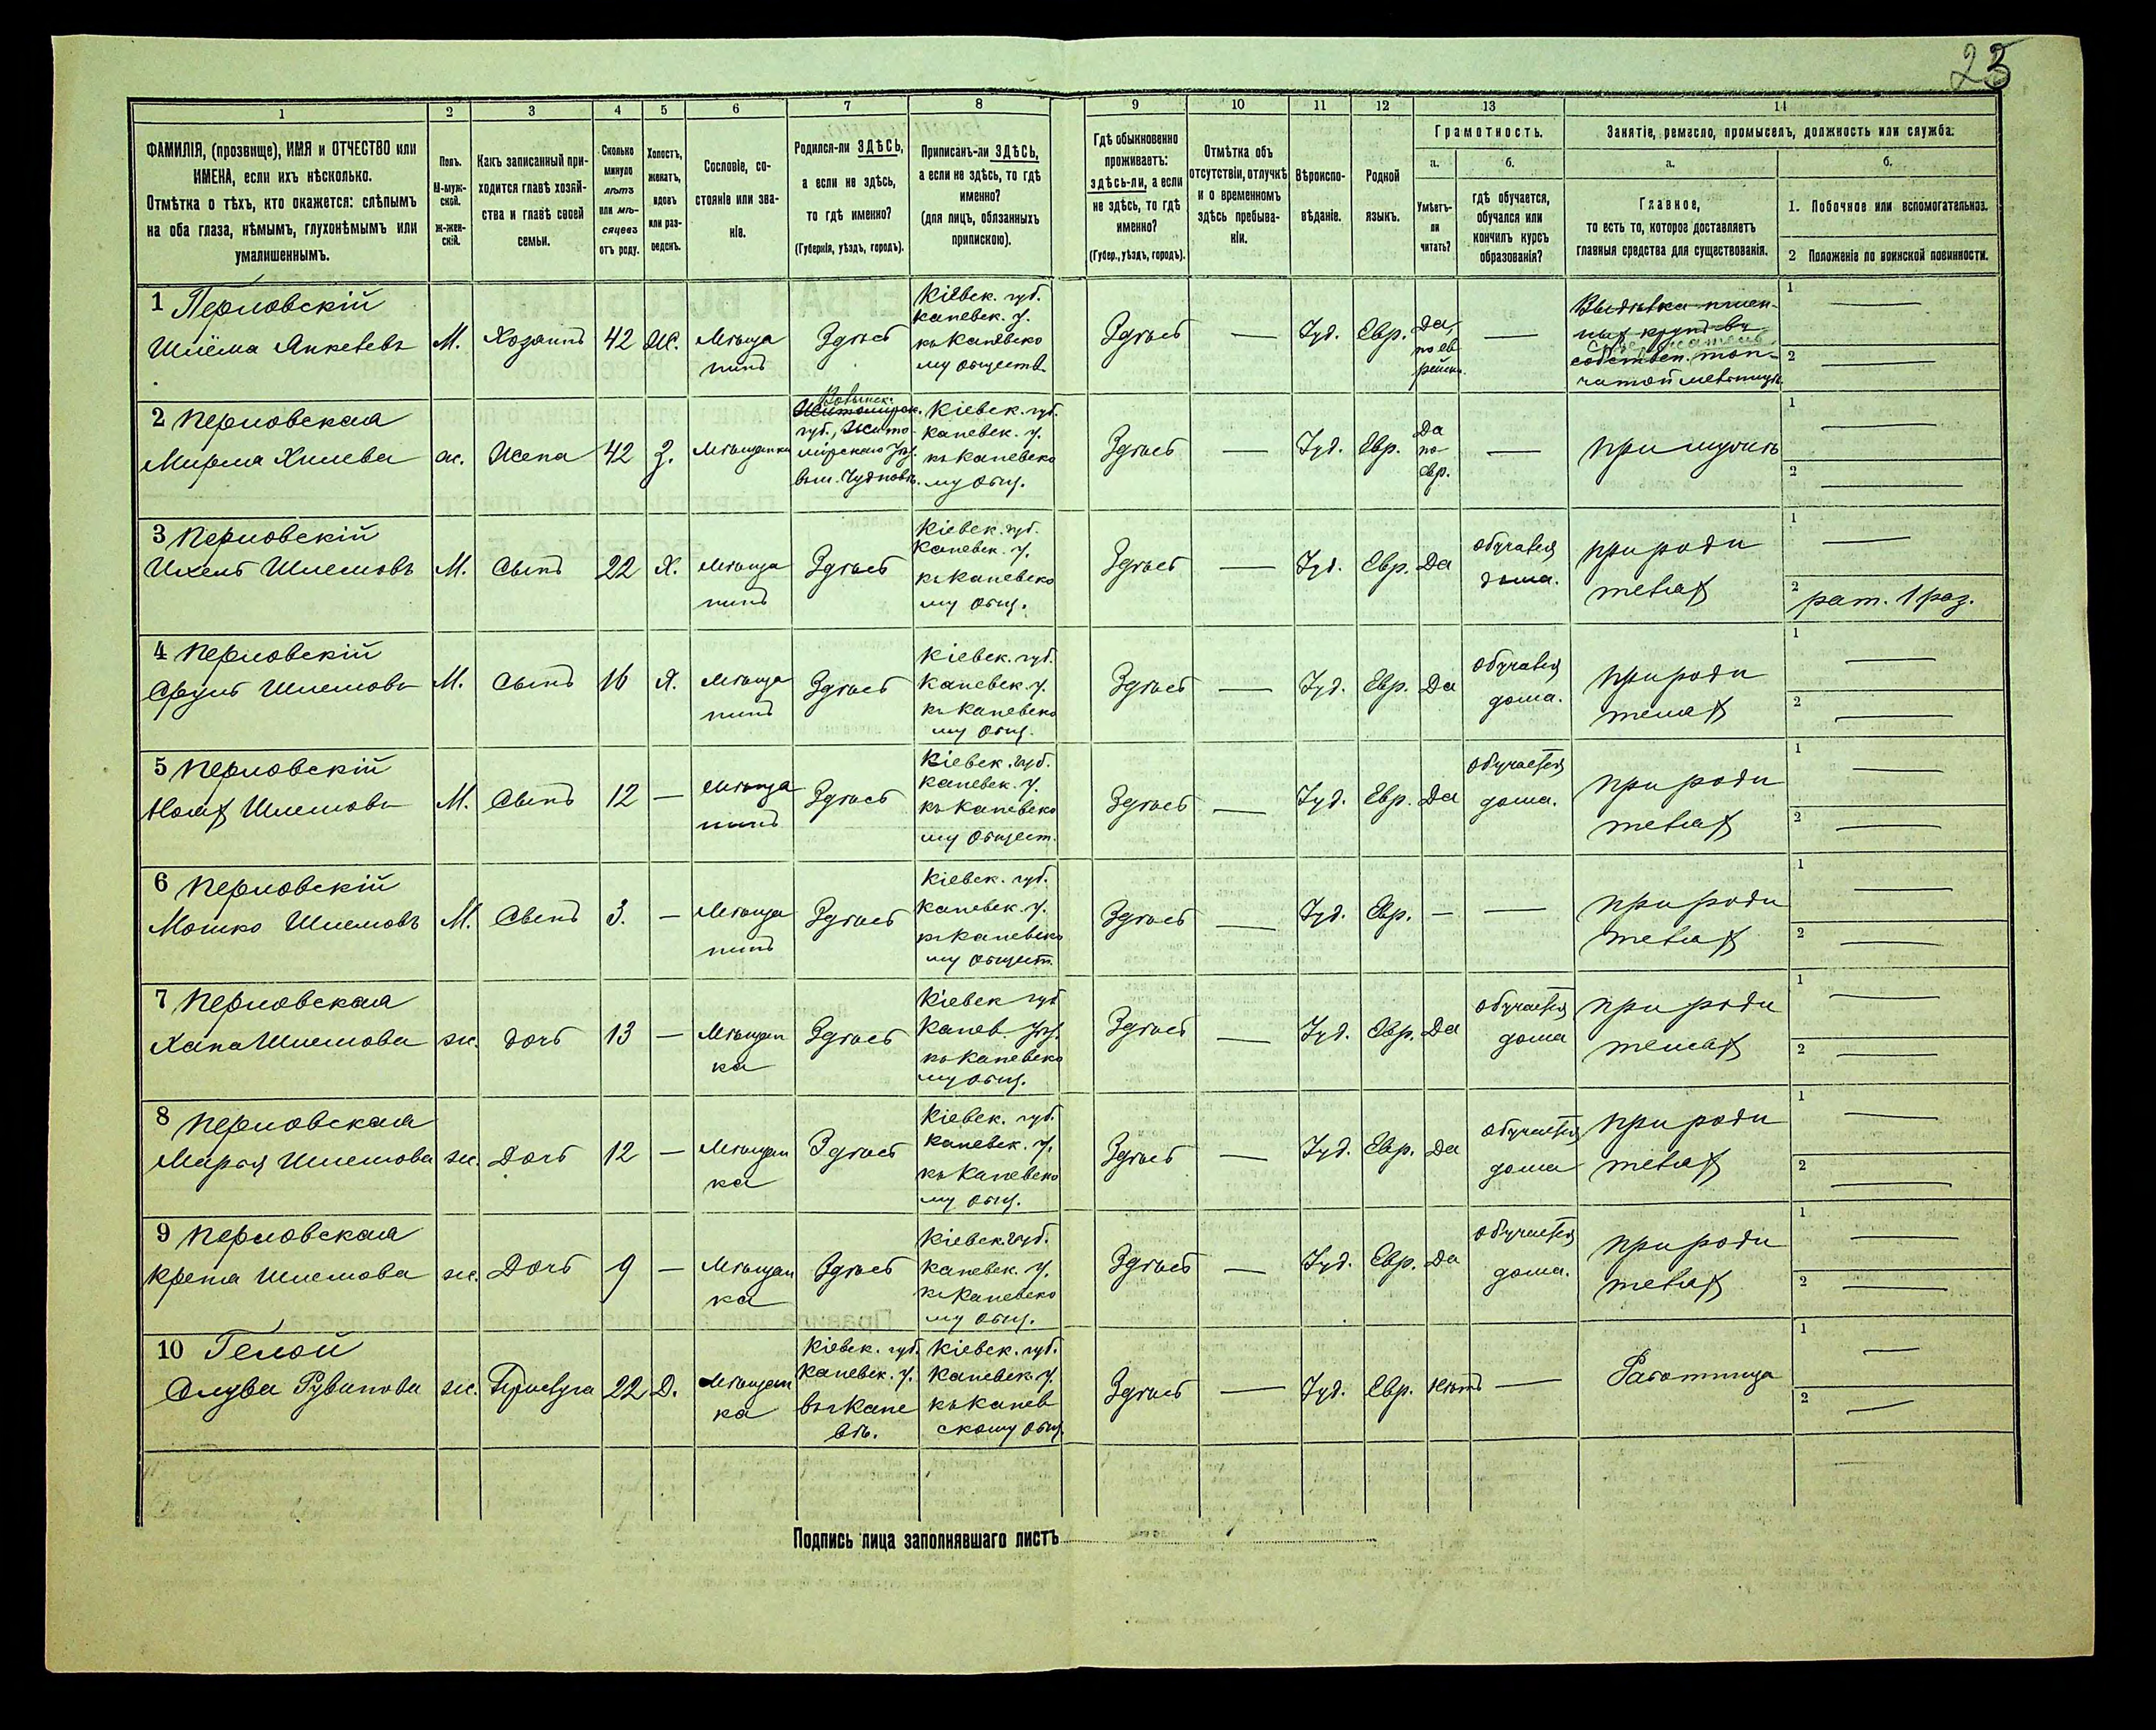 23
1
2
3
4
5
6
7
8
9
10
11
12
13
14
ФАМИЛІЯ, (прозвище), ИМЯ и ОТЧЕСТВО или
ИМЕНА, если ихъ нѣсколько.
Отмѣтка о тѣхъ, кто окажется: слѣпымъ
на оба глаза, нѣмымъ, глухонѣмымъ или
умалишеннымъ.
Полъ.
М-муж-
ской.
ж-жен-
скій.
Какъ записанный при-
ходится главѣ хозяй-
ства и главѣ своей
семьи.
Сколько
минуло
лѣтъ
или мѣ-
сяцевъ
отъ роду.
Холостъ,
женатъ,
вдовъ
или раз-
веденъ.
Сословіе, со-
стояніе или зва-
ніе.
Родился-ли ЗДѢСЬ,
а если не здѣсь,
то гдѣ именно?
(Губернія, уѣздъ, городъ).
Приписанъ-ли ЗДѢСЬ,
а если не здѣсь, то гдѣ
именно?
(для лицъ, обязанныхъ
припискою).
Гдѣ обыкновенно
проживаетъ:
здѣсь-ли, а если
не здѣсь, то гдѣ
именно?
(Губер., уѣздъ, городъ).
Отмѣтка объ
отсутствіи, отлучкѣ
и о временномъ
здѣсь пребыва-
ніи.
Вѣроиспо-
вѣданіе.
Родной
языкъ.
Грамотность.
а.
Умѣетъ-
ли
читать?
б.
гдѣ обучается,
обучался или
кончилъ курсъ
образованія?
Занятіе, ремесло, промыселъ, должность или служба:
а.
Главное,
то есть то, которое доставляетъ
главныя средства для существованія.
б.
1. Побочное или вспомогательное.
2 Положеніе по воинской повинности.
1 Перловскій
Шлёма Янкелевъ
М.
Хозяинъ
42
Ж.
Мѣща
нинъ
Здѣсь
Кіевск. губ.
Каневск. у.
къ Каневско
му обществ.
Здѣсь
—
Іуд.
Евр.
Да,
по ев
рейски.
—
собствен. топ-
1 —
2 —
2 Перловская
Мирма Хилева
ж.
Жена
42
З.
Мѣщанка
Волынск.
Житомирск.
губ., Жито-
мірскаго уѣз.
въ м. Чудновъ.
Кіевск. губ.
Каневск. у.
къ Каневско
му общ.
Здѣсь
—
Іуд.
Евр.
Да
по-
евр.
—
при мужѣ
1 —
2 —
3 Перловскій
Ихель Шлемовъ
М.
Сынъ
22
Х.
Мѣща
нинъ
Здѣсь
Кіевск. губ.
Каневск. у.
къ Каневско
му общ.
Здѣсь
—
Іуд.
Евр.
Да
обучался
дома.
при роди
телях
1 —
2 рат. 1 раз.
4 Перловскій
Сруль Шлемовъ
М.
Сынъ
16
Х.
Мѣща
нинъ
Здѣсь
Кіевск. губ.
Каневск. у.
къ Каневско
му общ.
Здѣсь
—
Іуд.
Евр.
Да
обучался
дома.
при роди
телях
1 —
2 —
5 Перловскій
Шлемовъ
М.
Сынъ
12
—
Мѣща
нинъ
Здѣсь
Кіевск. губ.
Каневск. у.
къ Каневско
му общест.
Здѣсь
—
Іуд.
Евр.
Да
обучается
дома.
при роди
телях
1 —
2 —
6 Перловскій
Мошко Шлемовъ
М.
Сынъ
3.
—
Мѣща
нинъ
Здѣсь
Кіевск. губ.
Каневск. у.
къ Каневско
му общест.
Здѣсь
—
Іуд.
Евр.
—
—
при роди
телях
1 —
2 —
7 Перловская
Хана Шлемова
ж.
дочь
13
—
Мѣщан
ка
Здѣсь
Кіевск губ
Канев. уѣз.
къ Каневско
му общ.
Здѣсь
—
Іуд.
Евр.
Да
обучается
дома
при роди
телях
1 —
2 —
8 Перловская
Марья Шлемова
ж.
Дочь
12
—
Мѣщан
ка
Здѣсь
Кіевск. губ.
Каневск. у.
къ Каневско
му общ.
Здѣсь
—
Іуд.
Евр.
Да
обучается
дома
при роди
телях
1 —
2 —
9 Перловская
Крейна Шлемова
ж.
Дочь
9
—
Мѣщан
ка
Здѣсь
Кіевск. губ.
Каневск. у.
къ Каневско
му общ.
Здѣсь
—
Іуд.
Евр.
Да
обучается
дома.
при роди
телях
1 —
2 —
10
Рувинова
ж.
Прислуга
22
Д.
Мѣщан
ка
Кіевск. губ.
Каневск. у.
въ г Кане
вѣ.
Кіевск. губ.
Каневск. у.
къ Канев
скому общ.
Здѣсь
—
Іуд.
Евр.
Нѣтъ
—
Работница
1 —
2 —
Подпись лица заполнявшаго листъ